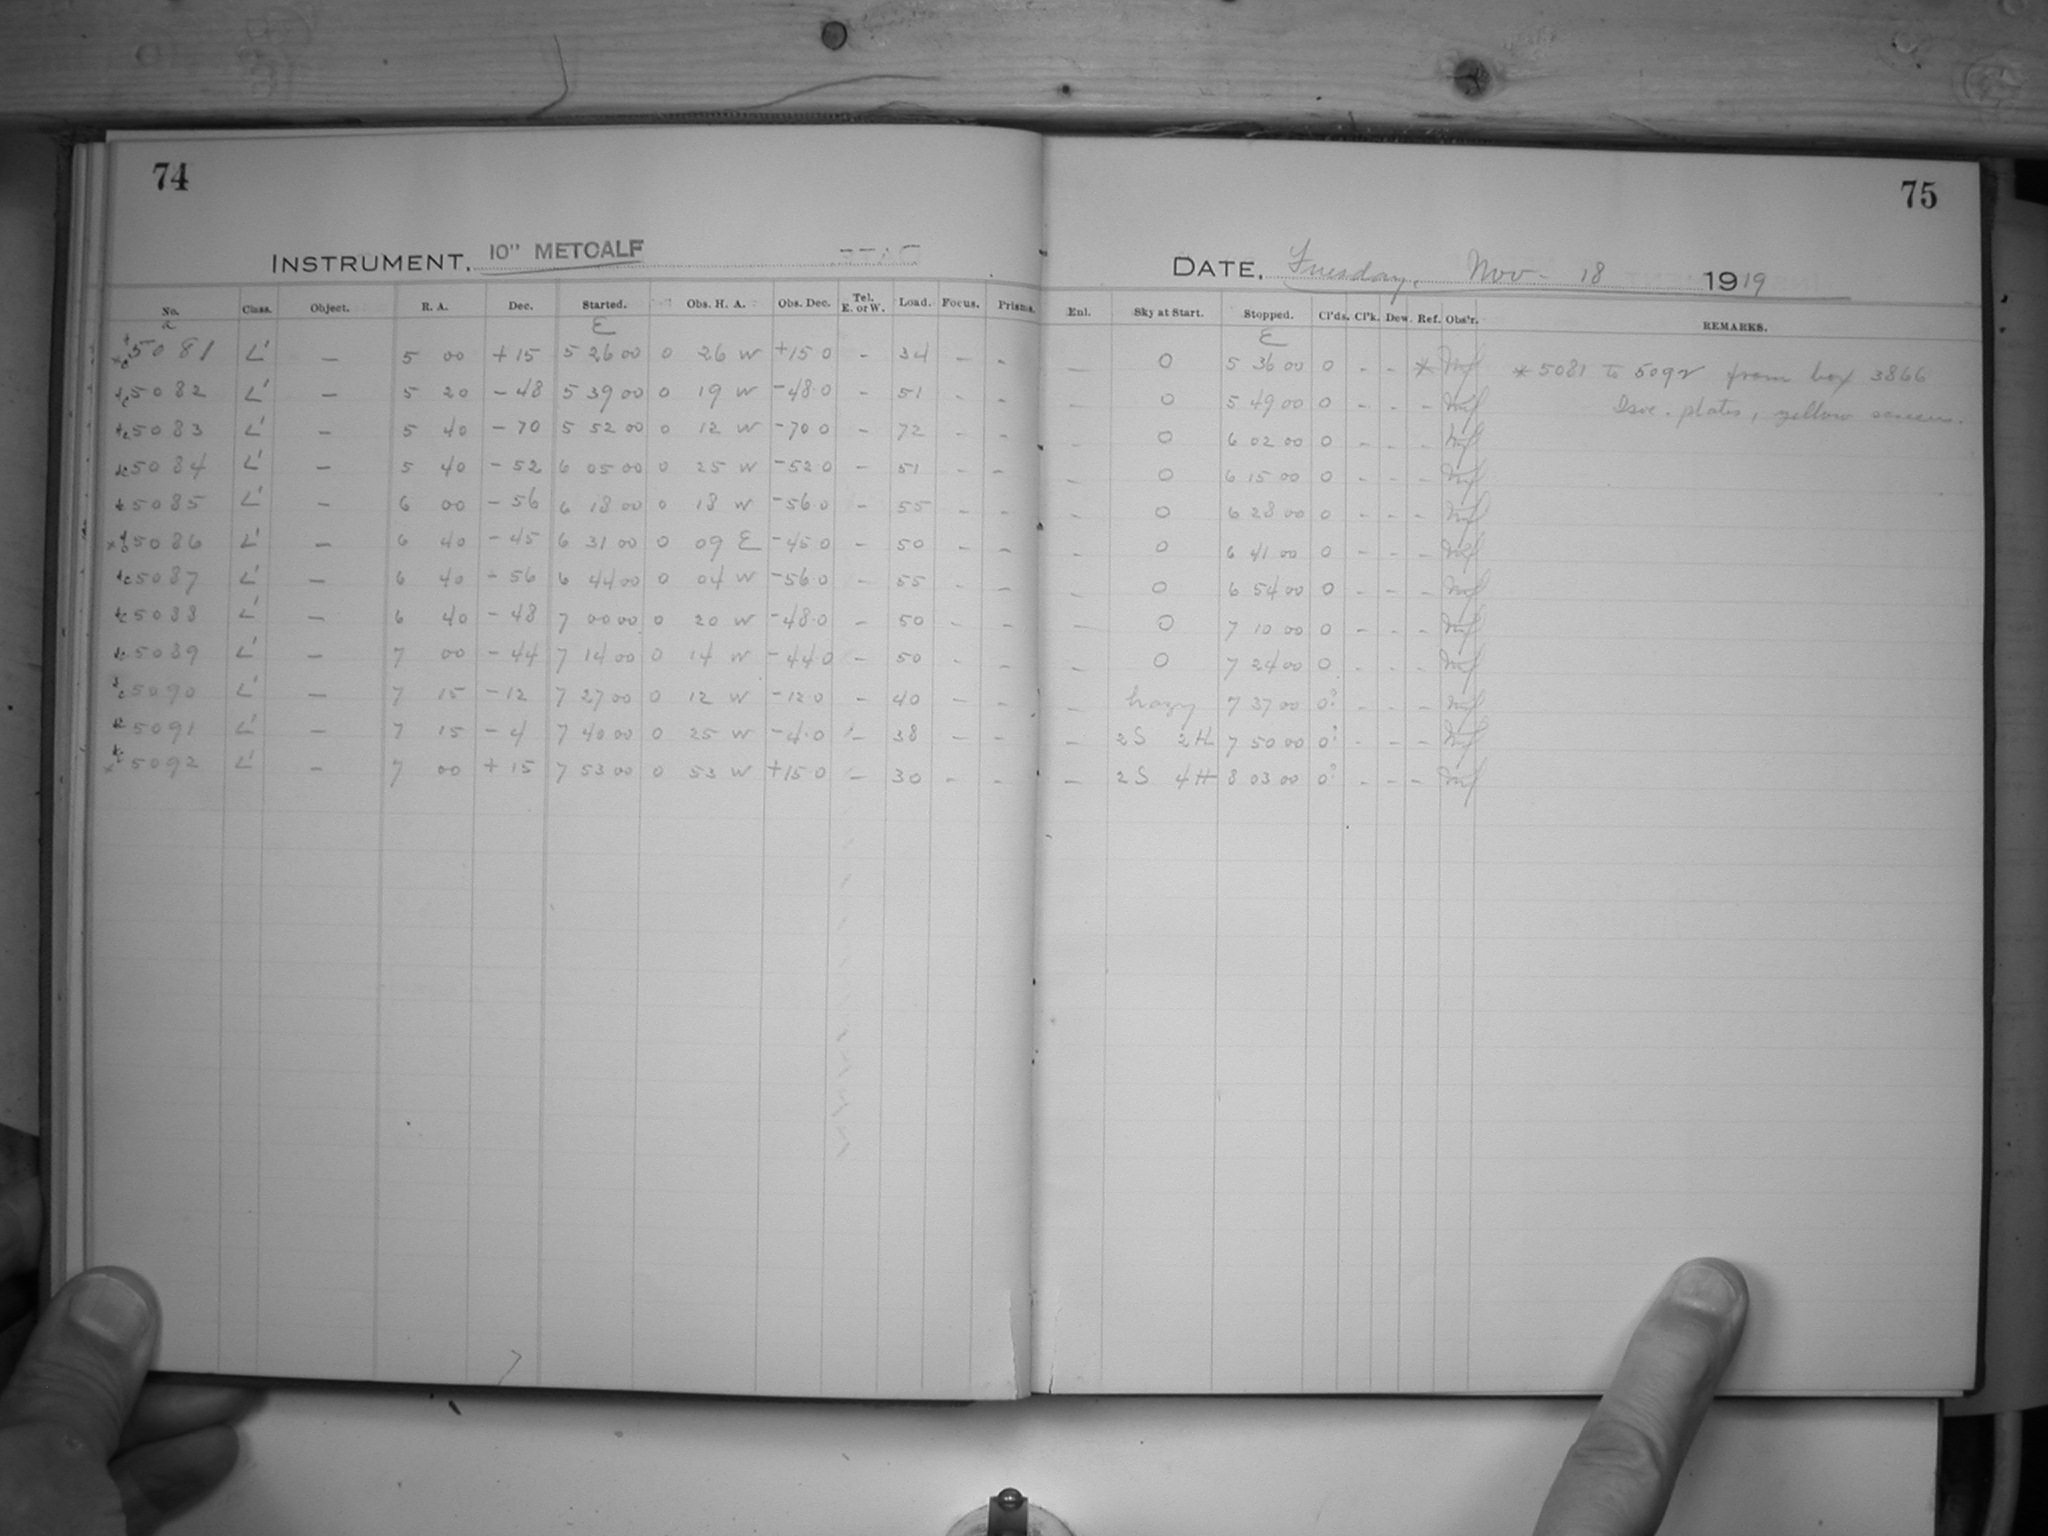 74
75
INSTRUMENT. 10" METCALF
DATE. Tuesday, Nov. 18 1919
No. Class. Object. R. A. Dec. Started. Obs. H. A. Obs. Dec. Tel. E. or W. Load. Focus. Prisms. Enl. Sky at Start. Stopped. Cl'ds. Cl'k. Dew. Ref. Obs'r. REMARKS.
a E E
5081 L' — 5 00 +15 5 26 00 0 26 W +15 0 - 34 - - — 0 5 36 00 0 - - * * 5081 to 5092 from box 3866
5082 L' — 5 20 -48 5 39 00 0 19 W -48.0 - 51 - - - 0 5 49 00 0 - - - plates, yellow screen.
5083 L' — 5 40 -70 5 52 00 0 12 W -70 0 - 72 - - - 0 6 02 00 0 - - -
5084 L' — 5 40 -52 6 05 00 0 25 W -52 0 - 51 - - - 0 6 15 00 0 - - -
5085 L' — 6 00 -56 6 18 00 0 18 W -56.0 - 55 - - - 0 6 28 00 0 - - -
5086 L' — 6 40 -45 6 31 00 0 09 E -45 0 - 50 - - - 0 6 41 00 0 - - -
5087 L' — 6 40 -56 6 44 00 0 04 W -56.0 - 55 - - - 0 6 54 00 0 - - -
5088 L' — 6 40 -48 7 00 00 0 20 W -48.0 - 50 - - — 0 7 10 00 0 - - -
5089 L' — 7 00 -44 7 14 00 0 14 W -44.0 - 50 - - - 0 7 24 00 0 - - -
5090 L' — 7 15 -12 7 27 00 0 12 W -12.0 - 40 - - - hazy 7 37 00 0? - - -
5091 L' — 7 15 -4 7 40 00 0 25 W -4.0 - 38 - - - 2S 2H 7 50 00 0? - - -
5092 L' — 7 00 +15 7 53 00 0 53 W +15 0 - 30 - - - 2S 4H 8 03 00 0? - - -